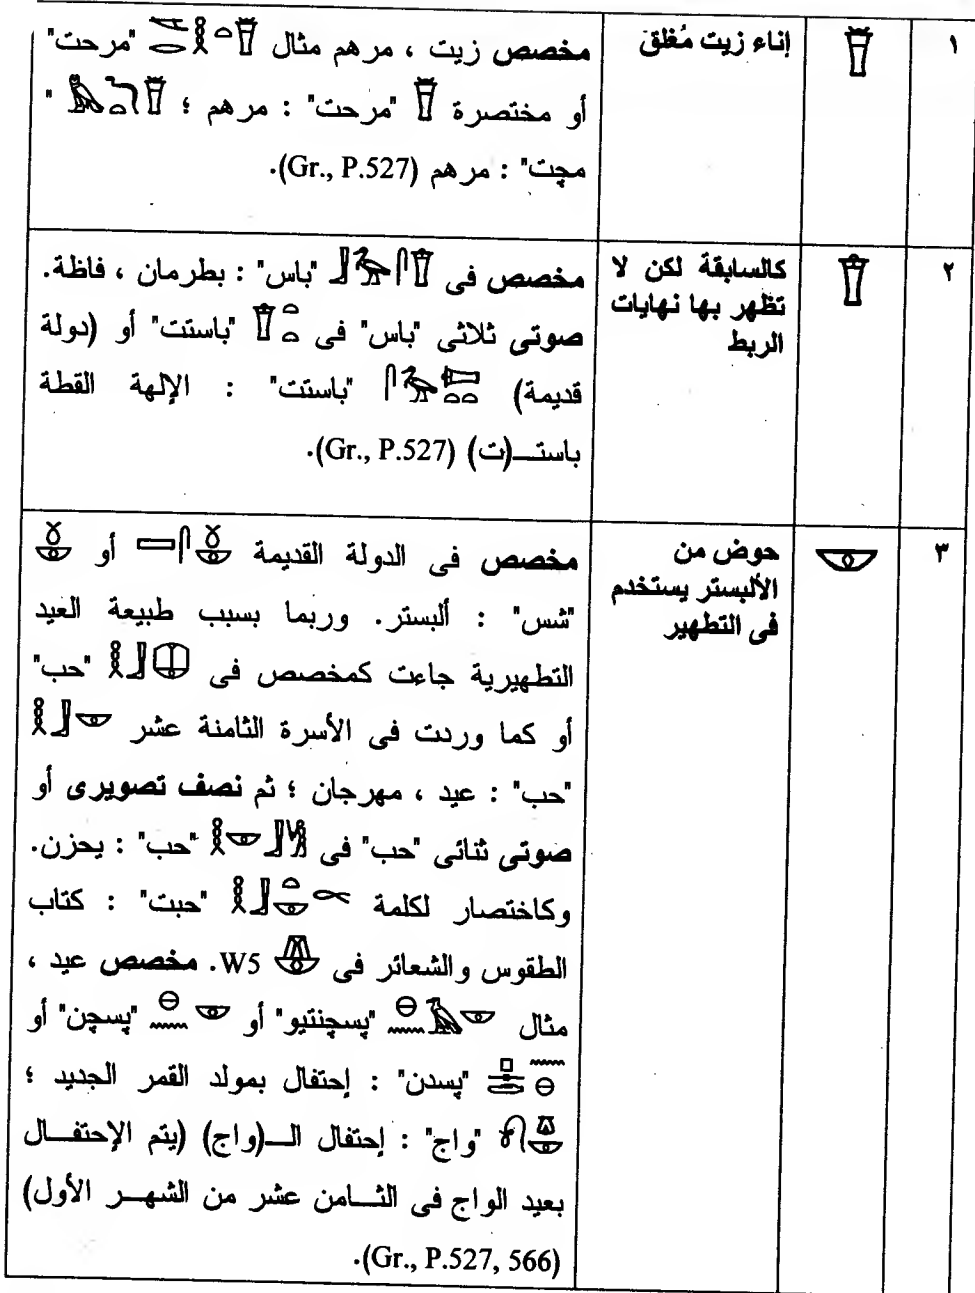 ١ 𓎯 إناء زيت مُغلق
مخصص زيت ، مرهم مثال "مرحت"
أو مختصرة 𓎯 "مرحت" : مرهم ؛ "
مچت" : مرهم (Gr., P.527).
٢ 𓎰 كالسابقة لكن لا
تظهر بها نهايات
الربط
مخصص فى "باس" : بطرمان ، فاظة.
صوتى ثلاثى "باس" فى "باستت" أو (دولة
قديمة) "باستت" : الإلهة القطة
باستـــ(ت) (Gr., P.527).
٣ 𓎱 حوض من
الألبستر يستخدم
فى التطهير
مخصص فى الدولة القديمة أو
"شس" : ألبستر. وربما بسبب طبيعة العيد
التطهيرية جاءت كمخصص فى "حب"
أو كما وردت فى الأسرة الثامنة عشر
"حب" : عيد ، مهرجان ؛ ثم نصف تصويرى أو
صوتى ثنائى "حب" فى "حب" : يحزن.
وكاختصار لكلمة "حبت" : كتاب
الطقوس والشعائر فى W5. مخصص عيد ،
مثال "پسچنتيو" أو "پسچن" أو
"پسدن" : إحتفال بمولد القمر الجديد ؛
"واج" : إحتفال الـــ(واج) (يتم الإحتفـــال
بعيد الواج فى الثـــامن عشر من الشهـــر الأول)
(Gr., P.527, 566).